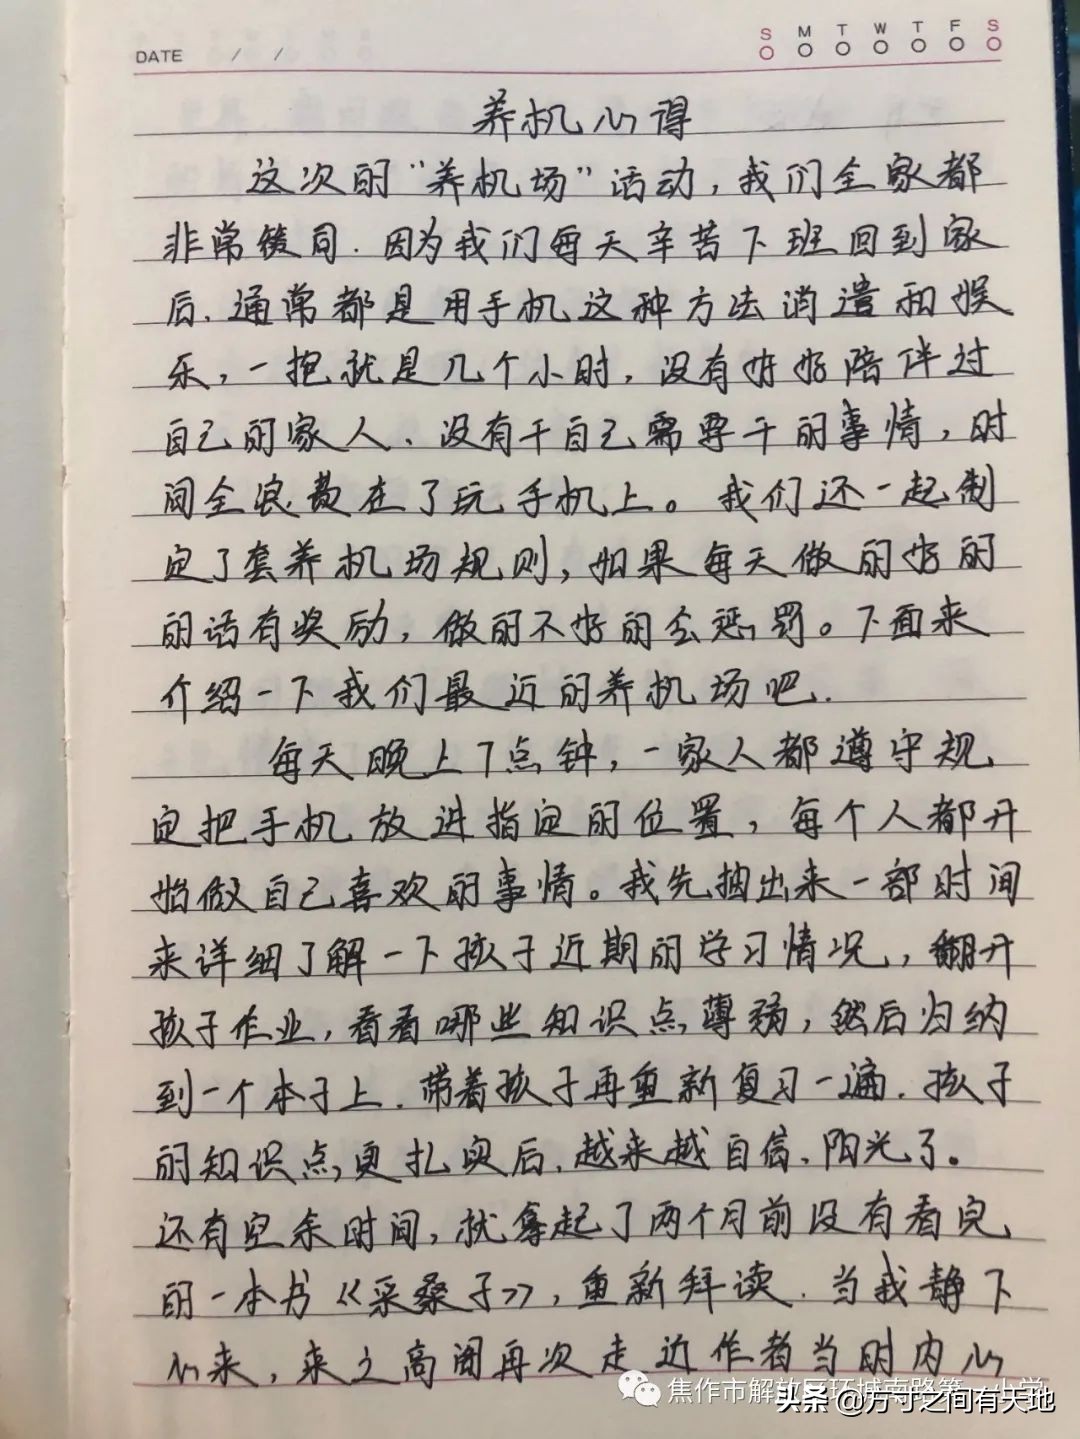 DATE / /
S M T W T F S
养机心得
这次的“养机场”活动，我们全家都
非常赞同.因为我们每天辛苦下班回到家
后.通常都是用手机这种方法消遣和娱
乐，一抱就是几个小时，没有好好陪伴过
自己的家人、没有干自己需要干的事情，时
间全浪费在了玩手机上。我们还一起制
定了套养机场规则，如果每天做的好的
的话有奖励，做的不好的会惩罚。下面来
介绍一下我们最近的养机场吧.
每天晚上7点钟，一家人都遵守规
定把手机放进指定的位置，每个人都开
始做自己喜欢的事情。我先抽出来一部时间
来详细了解一下孩子近期的学习情况，翻开
孩子作业，看看哪些知识点薄弱，然后归纳
到一个本子上.带着孩子再重新复习一遍.孩子
的知识点更扎实后.越来越自信.阳光了。
还有空余时间，就拿起了两个月前没有看完
的一本书《采桑子》，重新拜读.当我静下
心来，来之高阁再次走近作者当时内心
焦作市解放区环城南路第一小学
头条@方寸之间有天地